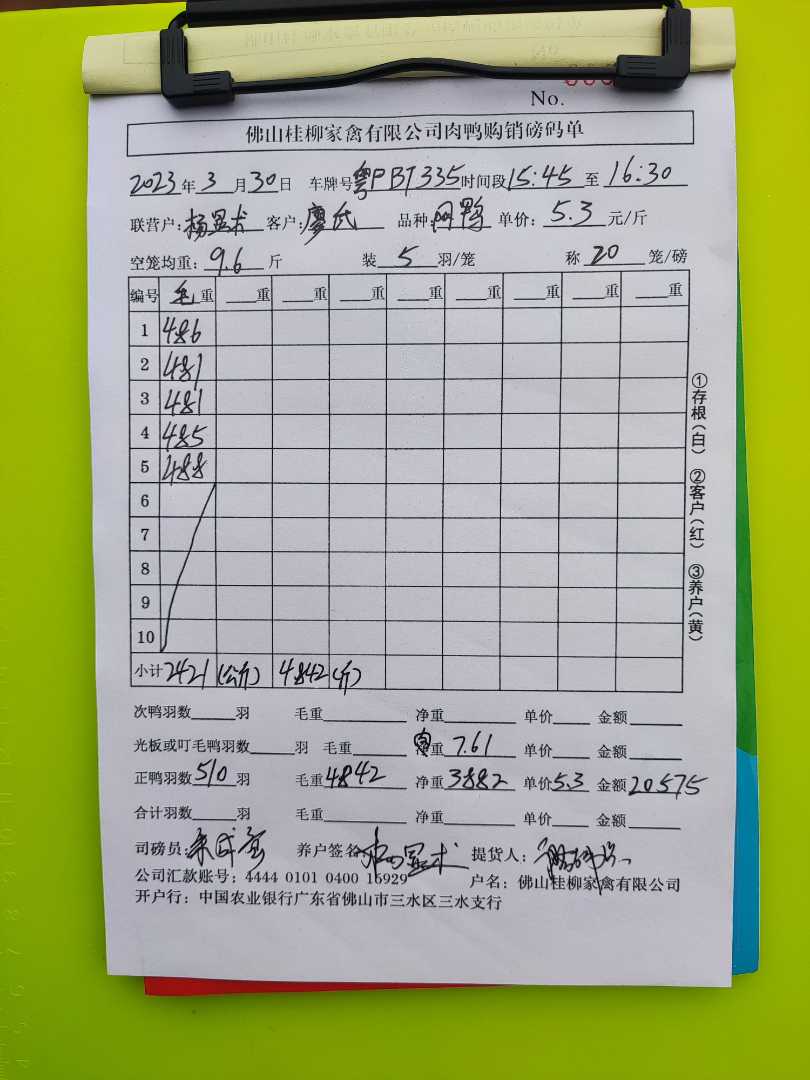 No.
佛山桂柳家禽有限公司肉鸭购销磅码单
2023年3月30日 车牌号粤PBT335时间段15:45至16:30
联营户:杨显术 客户:廖氏 品种: 单价:5.3元/斤
空笼均重:9.6斤 装5羽/笼 称20笼/磅
编号 毛重 重 重 重 重 重 重 重 重
1 486
2 481
3 481
4 485
5 488
6
7
8
9
10
小计 2421 (公斤) 4842 (斤)
①存根(白) ②客户(红) ③养户(黄)
次鸭羽数 羽 毛重 净重 单价 金额
光板或叮毛鸭羽数 羽 毛重 重 7.61 单价 金额
正鸭羽数510羽 毛重4842 净重3882 单价5.3 金额20575
合计羽数 羽 毛重 净重 单价 金额
司磅员: 养户签名 提货人:
公司汇款账号:4444 0101 0400 15929 户名:佛山桂柳家禽有限公司
开户行:中国农业银行广东省佛山市三水区三水支行